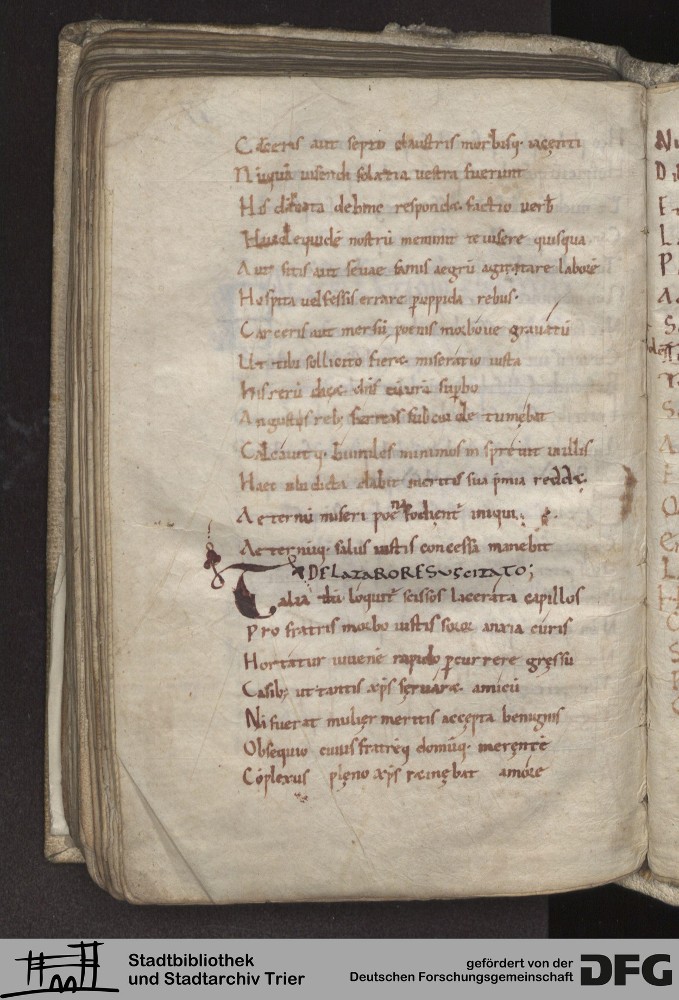 Carceris aut septo claustris morbisq; iacenti
Nũquã uisendi solatia uestra fuerunt
His dãnata dehinc respondet factio uerbis
equidẽ nostrũ meminit te uisere quisquã
Aut sitis aut seuae famis aegrũ agitare laborẽ
Hospita uel fessis errare p oppida rebus.
Carceris aut mersũ poenis morboue grauatũ
Ut tibi sollicito fieret miseratio iusta
His rerũ dicet dñs
Angustis reb; fortis sub corde tumebat
Calcauitq; humiles minimos in spreuit in illis
Haec ubi dicta dabit meritis sua p̃mia reddet
Aeternũ miseri poenã iniqui.
Aeternũq; salus iustis concessa manebit
DE LAZARO RESUSCITATO;
Talia tũ loquitur scissos lacerata capillos
Pro fratris morbo iustis soror anxia curis
Hortatur iuuenẽ rapido pcurrere gressu
Casib; ut tantis xps seruaret amicũ
Ni fuerat mulier meritis accepta benignis
Obsequio cuius fratrẽq; domũq; merentẽ
Cõplexus pleno xps retinebat amore
Stadtbibliothek
und Stadtarchiv Trier
gefördert von der
Deutschen Forschungsgemeinschaft
DFG